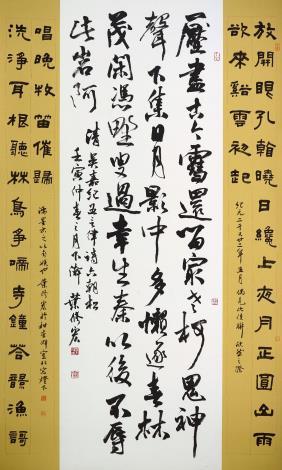 放開眼孔看曉日纔上夜月正圓山雨
欲來溪雲初起
歷盡古今霜還留冢老柯鬼神
聲下集日月影中多懶逐春林
茂閑憑野叟過幸生秦以後不辱
此岩阿 清吴嘉紀五言律詩六朝松
壬寅仲夏之月下浣 葉修宏
唱晚牧笛催歸
洗淨耳根聽林鳥爭啼寺鐘答韻漁謌